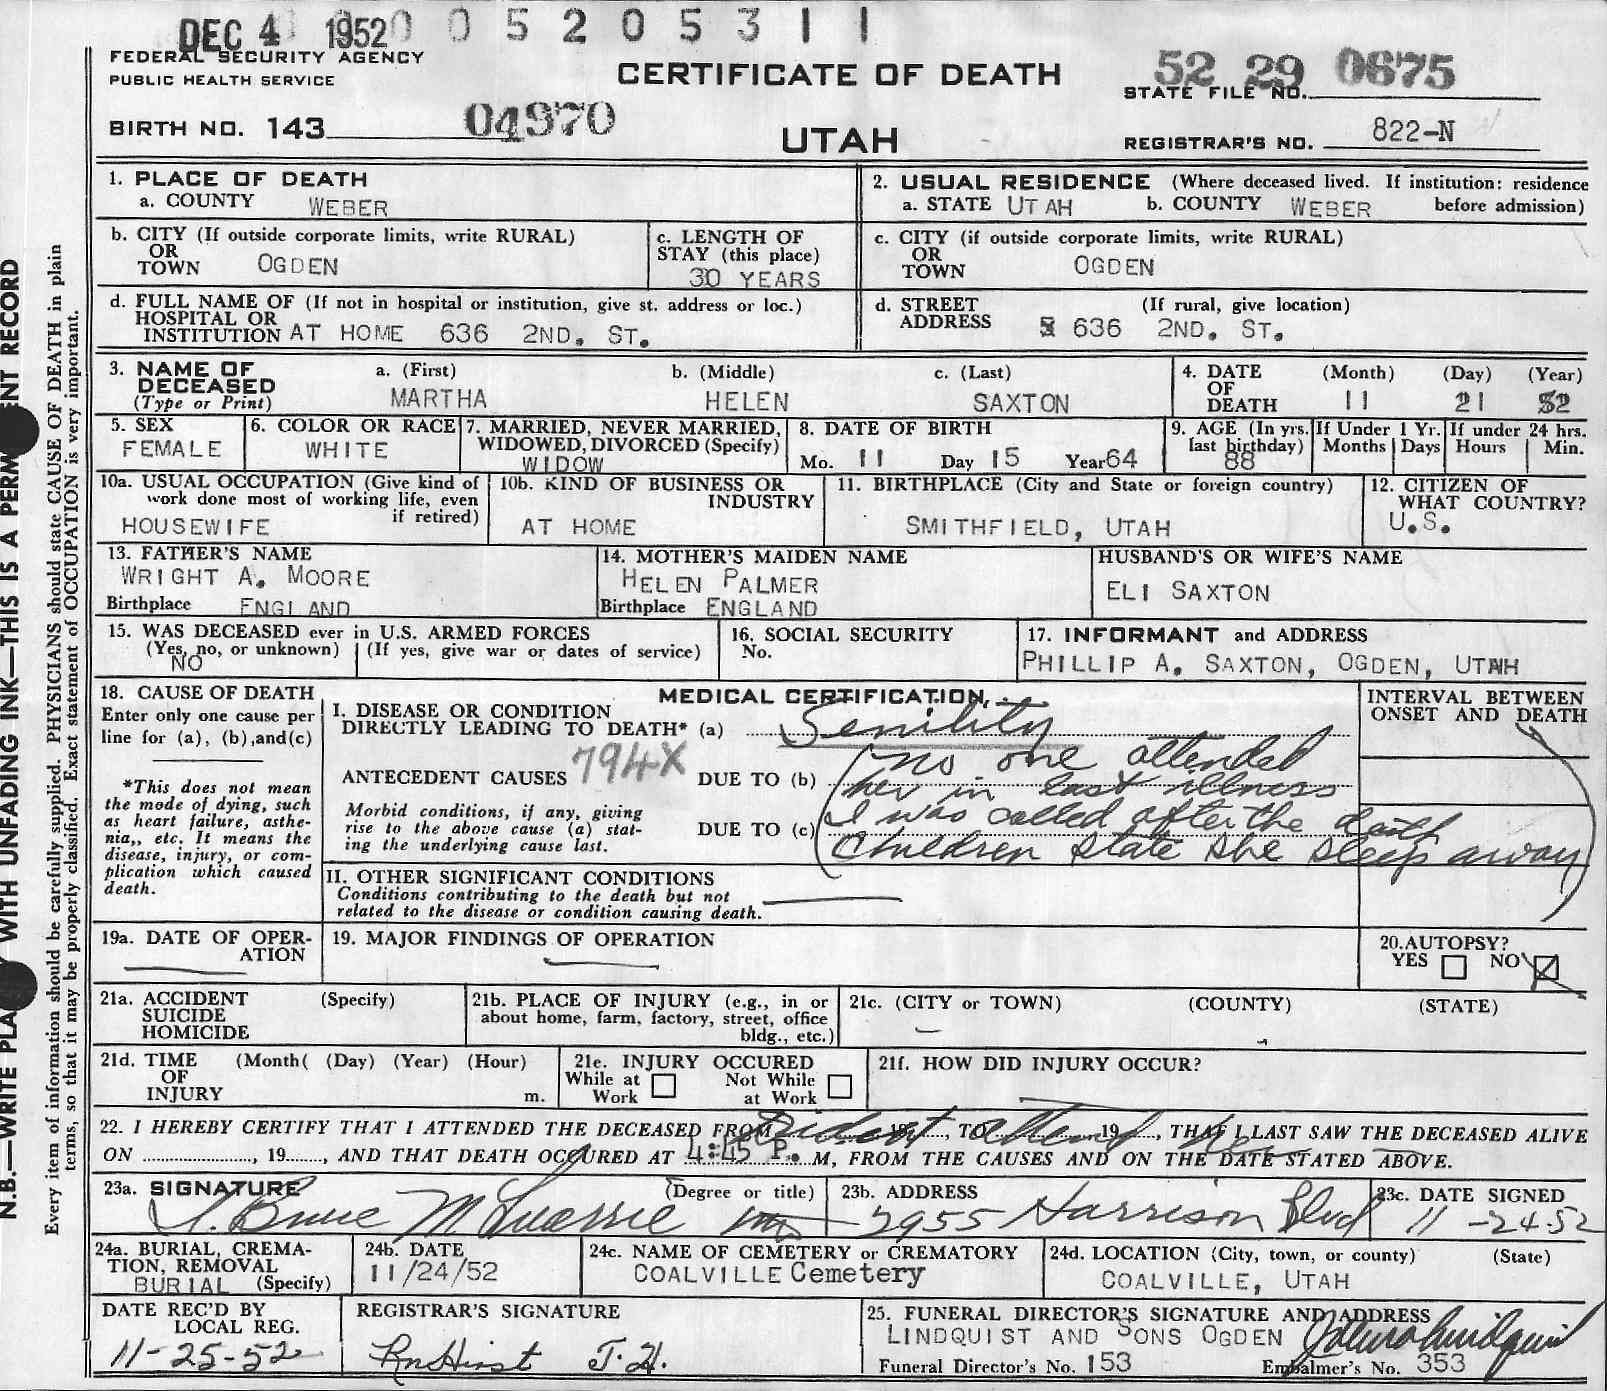 DEC 4 1952 0 0 5 2 0 5 3 1 1
FEDERAL SECURITY AGENCY
PUBLIC HEALTH SERVICE
CERTIFICATE OF DEATH
52 29 0675
STATE FILE NO.
BIRTH NO. 143 04970
UTAH
REGISTRAR'S NO. 822-N
1. PLACE OF DEATH
a. COUNTY WEBER
2. USUAL RESIDENCE (Where deceased lived. If institution: residence
a. STATE UTAH b. COUNTY WEBER before admission)
b. CITY (If outside corporate limits, write RURAL)
OR
TOWN OGDEN
c. LENGTH OF
STAY (this place)
30 YEARS
c. CITY (if outside corporate limits, write RURAL)
OR
TOWN OGDEN
d. FULL NAME OF (If not in hospital or institution, give st. address or loc.)
HOSPITAL OR
INSTITUTION AT HOME 636 2ND. ST.
d. STREET (If rural, give location)
ADDRESS 636 2ND. ST.
3. NAME OF a. (First) b. (Middle) c. (Last)
DECEASED
(Type or Print) MARTHA HELEN SAXTON
4. DATE (Month) (Day) (Year)
OF
DEATH 11 21 52
5. SEX
FEMALE
6. COLOR OR RACE
WHITE
7. MARRIED, NEVER MARRIED,
WIDOWED, DIVORCED (Specify)
WIDOW
8. DATE OF BIRTH
Mo. 11 Day 15 Year 64
9. AGE (In yrs.
last birthday)
88
If Under 1 Yr.
Months Days
If under 24 hrs.
Hours Min.
10a. USUAL OCCUPATION (Give kind of
work done most of working life, even
if retired)
HOUSEWIFE
10b. KIND OF BUSINESS OR
INDUSTRY
AT HOME
11. BIRTHPLACE (City and State or foreign country)
SMITHFIELD, UTAH
12. CITIZEN OF
WHAT COUNTRY?
U.S.
13. FATHER'S NAME
WRIGHT A. MOORE
Birthplace ENGLAND
14. MOTHER'S MAIDEN NAME
HELEN PALMER
Birthplace ENGLAND
HUSBAND'S OR WIFE'S NAME
ELI SAXTON
15. WAS DECEASED ever in U.S. ARMED FORCES
(Yes, no, or unknown) (If yes, give war or dates of service)
NO
16. SOCIAL SECURITY
No.
17. INFORMANT and ADDRESS
PHILLIP A. SAXTON, OGDEN, UTAH
18. CAUSE OF DEATH
Enter only one cause per
line for (a), (b), and (c)
*This does not mean
the mode of dying, such
as heart failure, asthe-
nia,, etc. It means the
disease, injury, or com-
plication which caused
death.
MEDICAL CERTIFICATION
I. DISEASE OR CONDITION
DIRECTLY LEADING TO DEATH* (a) Senility
ANTECEDENT CAUSES 794X DUE TO (b) (no one attended
her in last illness
Morbid conditions, if any, giving
rise to the above cause (a) stat-
ing the underlying cause last.
DUE TO (c) I was called after the death
Children state she sleep away)
INTERVAL BETWEEN
ONSET AND DEATH
II. OTHER SIGNIFICANT CONDITIONS
Conditions contributing to the death but not
related to the disease or condition causing death.
19a. DATE OF OPER-
ATION
19. MAJOR FINDINGS OF OPERATION
20. AUTOPSY?
YES NO
21a. ACCIDENT (Specify)
SUICIDE
HOMICIDE
21b. PLACE OF INJURY (e.g., in or
about home, farm, factory, street, office
bldg., etc.)
21c. (CITY or TOWN) (COUNTY) (STATE)
21d. TIME (Month( (Day) (Year) (Hour)
OF
INJURY m.
21e. INJURY OCCURED
While at Work Not While at Work
21f. HOW DID INJURY OCCUR?
22. I HEREBY CERTIFY THAT I ATTENDED THE DECEASED FROM did not, 19, TO attend, 19, THAT I LAST SAW THE DECEASED ALIVE
ON, 19, AND THAT DEATH OCCURED AT 4:45 P. M, FROM THE CAUSES AND ON THE DATE STATED ABOVE.
23a. SIGNATURE (Degree or title)
Bruce McQuarrie
23b. ADDRESS
2955 Harrison Blvd
23c. DATE SIGNED
11-24-52
24a. BURIAL, CREMA-
TION, REMOVAL
BURIAL (Specify)
24b. DATE
11/24/52
24c. NAME OF CEMETERY or CREMATORY
COALVILLE Cemetery
24d. LOCATION (City, town, or county) (State)
COALVILLE, UTAH
DATE REC'D BY
LOCAL REG.
11-25-52
REGISTRAR'S SIGNATURE
Hirst J.H.
25. FUNERAL DIRECTOR'S SIGNATURE AND ADDRESS
LINDQUIST AND SONS OGDEN
Funeral Director's No. 153 Embalmer's No. 353
N.B.—WRITE PLA WITH UNFADING INK—THIS IS A PERM ENT RECORD
Every item of information should be carefully supplied. PHYSICIANS should state CAUSE OF DEATH in plain
terms, so that it may be properly classified. Exact statement of OCCUPATION is very important.